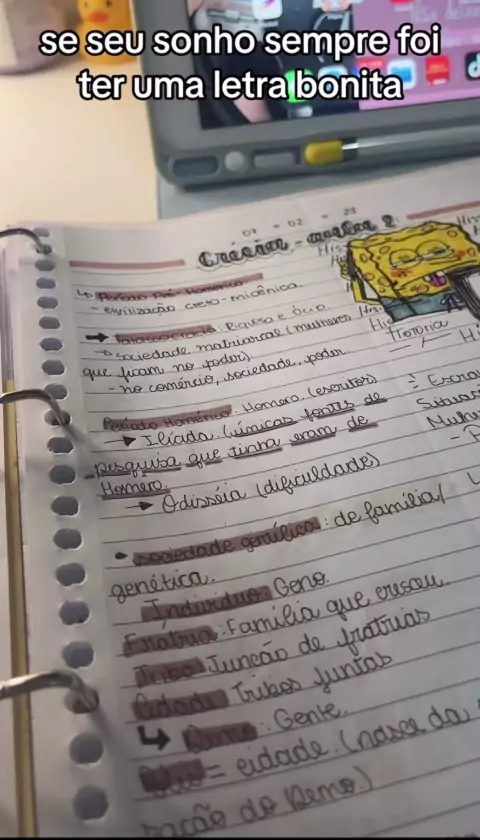 se seu sonho sempre foi
ter uma letra bonita
07 - 02 - 23
Grécia -
↳ Período Pré-Homérico
- civilização creto-micênica.
→ Talassocracia: Riqueza e ócio
→ sociedade matriarcal (mulheres
que ficam no poder)
- no comércio, sociedade, poder
Período Homérico: Homero (escritor)
→ Ilíada (únicas fontes de
pesquisa que tinha eram de
Homero.
→ Odisséia (dificuldade)
• sociedade gentílica: de família/
genética.
Indivíduo: Geno.
Frátria: Família que cresceu
Tribo Junção de fratrias
Cidade Tribos juntas
↳ Demo: Gente.
= cidade. (nasce da
Demo.)
His
Historia
His
Hi
Escra
Mulh